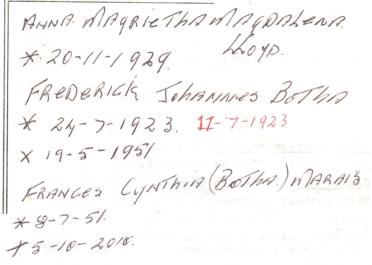 ANNA MAGRIETHA MAGDALENA
LLOYD.
* 20-11-1929.
FREDERICK JOHANNES BOTHA
* 24-7-1923. 11-7-1923
x 19-5-1951
FRANCES CYNTHIA (BOTHA) MARAIS
* 8-7-51.
† 5-10-2010.